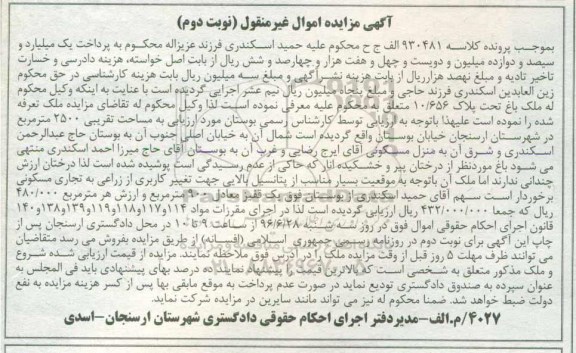 آگهی مزایده اموال غیرمنقول (نوبت دوم)
بموجب پرونده کلاسه ۹۳۰۴۸۱ الف ج ح محکوم علیه حمید اسکندری فرزند عزیزاله محکوم به پرداخت یک میلیارد و
سیصد و دوازده میلیون و دویست و چهل و هفت هزار و چهارصد و شش ریال از بابت اصل خواسته، هزینه دادرسی و خسارت
تاخیر تادیه و مبلغ نهصد هزارریال از بابت هزینه نشر آگهی و مبلغ سه میلیون ریال بابت هزینه کارشناسی در حق محکوم
له زین العابدین اسکندری فرزند حاجی و مبلغ پنجاه میلیون ریال نیم عشر اجرایی گردیده است با عنایت به اینکه وکیل محکوم
له ملک باغ تحت پلاک ۱۰/۶۵۶ متعلق به محکوم علیه معرفی نموده است لذا وکیل محکوم له تقاضای مزایده ملک تعرفه
شده را نموده است علیهذا باتوجه به ارزیابی توسط کارشناس رسمی بوستان مورد ارزیابی به مساحت تقریبی ۲۵۰۰ مترمربع
در شهرستان ارسنجان خیابان بوستان واقع گردیده است شمال آن به خیابان اصلی جنوب آن به بوستان حاج عبدالرحمن
اسکندری و شرق آن به منزل مسکونی آقای ایرج رضایی و غرب آن به بوستان آقای حاج میرزا احمد اسکندری منتهی
می شود باغ موردنظر از درختان پیر و خشکیده انار که حاکی از عدم رسیدگی است پوشیده شده است لذا درختان ارزش
چندانی ندارند اما ملک آن باتوجه به موقعیت بسیار مناسب از پتانسیل بالایی جهت تغییر کاربری از زراعی به تجاری مسکونی
برخوردار است سهم آقای حمید اسکندری از بوستان فوق یک قفیز معادل ۹۰۰ مترمربع و ارزش هر مترمربع ۴۸۰/۰۰۰
ریال که جمعا ۴۳۲/۰۰۰/۰۰۰ ریال ارزیابی گردیده است لذا در اجرای مقررات مواد ۱۱۴و۱۱۷و۱۱۸و۱۱۹و۱۳۸و۱۳۹و۱۴۰
قانون اجرای احکام حقوقی اموال فوق در روز سه شنبه ۹۶/۶/۲۸ از ساعت ۹ تا ۱۰ در محل دادگستری ارسنجان پس از
چاپ این آگهی برای نوبت دوم در روزنامه رسمی جمهوری اسلامی (افسانه) از طریق مزایده بفروش می رسد متقاضیان
می توانند ظرف مهلت ۵ روز قبل از وقت مزایده ملک را در آدرس فوق ملاحظه نمایند. مزایده از قیمت ارزیابی شده شروع
و ملک مذکور متعلق به شخصی است که بالاترین قیمت را پیشنهاد نماید. ده درصد بهای پیشنهادی باید فی المجلس به
عنوان سپرده به صندوق دادگستری تودیع نماید در صورت عدم پرداخت به موقع مابقی بها پس از کسر هزینه مزایده به نفع
دولت ضبط خواهد شد. ضمنا محکوم له نیز می تواند مانند سایرین در مزایده شرکت نماید.
۴۰۲۷/م.الف-مدیردفتر اجرای احکام حقوقی دادگستری شهرستان ارسنجان-اسدی